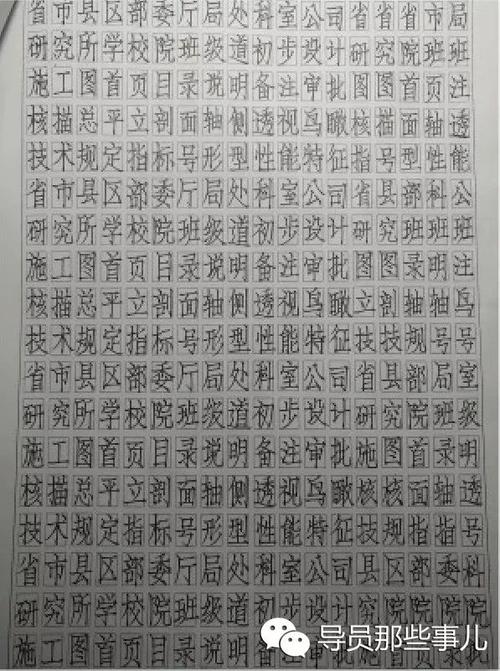 省市县区部委厅局处科室公司省省省市局
研究所学校院班级道初步设计研究院班班
施工图首页目录说明备注审批图图首页注
核描总平立剖面轴侧透视鸟瞰核描面轴透
技术规定指标号形型性能特征指号型性能
省市县区部委厅局处科室公司省县部科公
研究所学校院班级道初步设计研究班班班
施工图首页目录说明备注审批图图录明注
核描总平立剖面轴侧透视鸟瞰立剖轴轴鸟
技术规定指标号形型性能特征技技规号号
省市县区部委厅局处科室公司省县部局室
研究所学校院班级道初步设计研究院班级
施工图首页目录说明备注审批施图首录明
核描总平立剖面轴侧透视鸟瞰核核面轴透
技术规定指标号形型性能特征技规指指号
省市县区部委厅局处科室公司县区部委科
研究所学校院班级道初步设计究院院院院
施工图首页目录说明备注
导员那些事儿